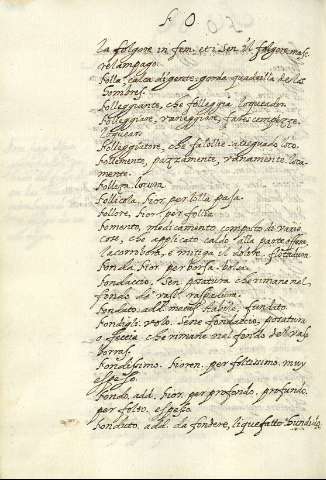 F O
la folgore in fem. et i Sen. il folgore mas.
relampago.
Folla. calca di gente. gorda quadrilla de los
hombres.
Folleggiante, che folleggia loqueador.
Folleggiare, vaneggiare, far
loquear.
Folleggiatore, che fa follie
Follemente, pazzamente, vanamente. loca-
mente.
Follezza locura.
Follicola, fior. per lolla paja.
Follore, fior per follia
Fomento, medicamento composto di varie
cose, che applicato caldo alla parte offesa
la corrobora, e mitiga il dolore.
Fonda. fior. per borsa. bolsa.
Fondaccio, Sen. posatura che rimane nel
fondo de' vasi.
Fondato. add. stabile, fundado
Fondigliuolo. Sene fondaccio, posatura
o feccia che rimane nel fondo de vasi
borras.
Fondissimo. fioren. per foltissimo. muy
espesso.
Fondo. add. fior. per profondo. profundo.
per folto. espesso.
Fonduto. add. da fondere, liquefatto fundido